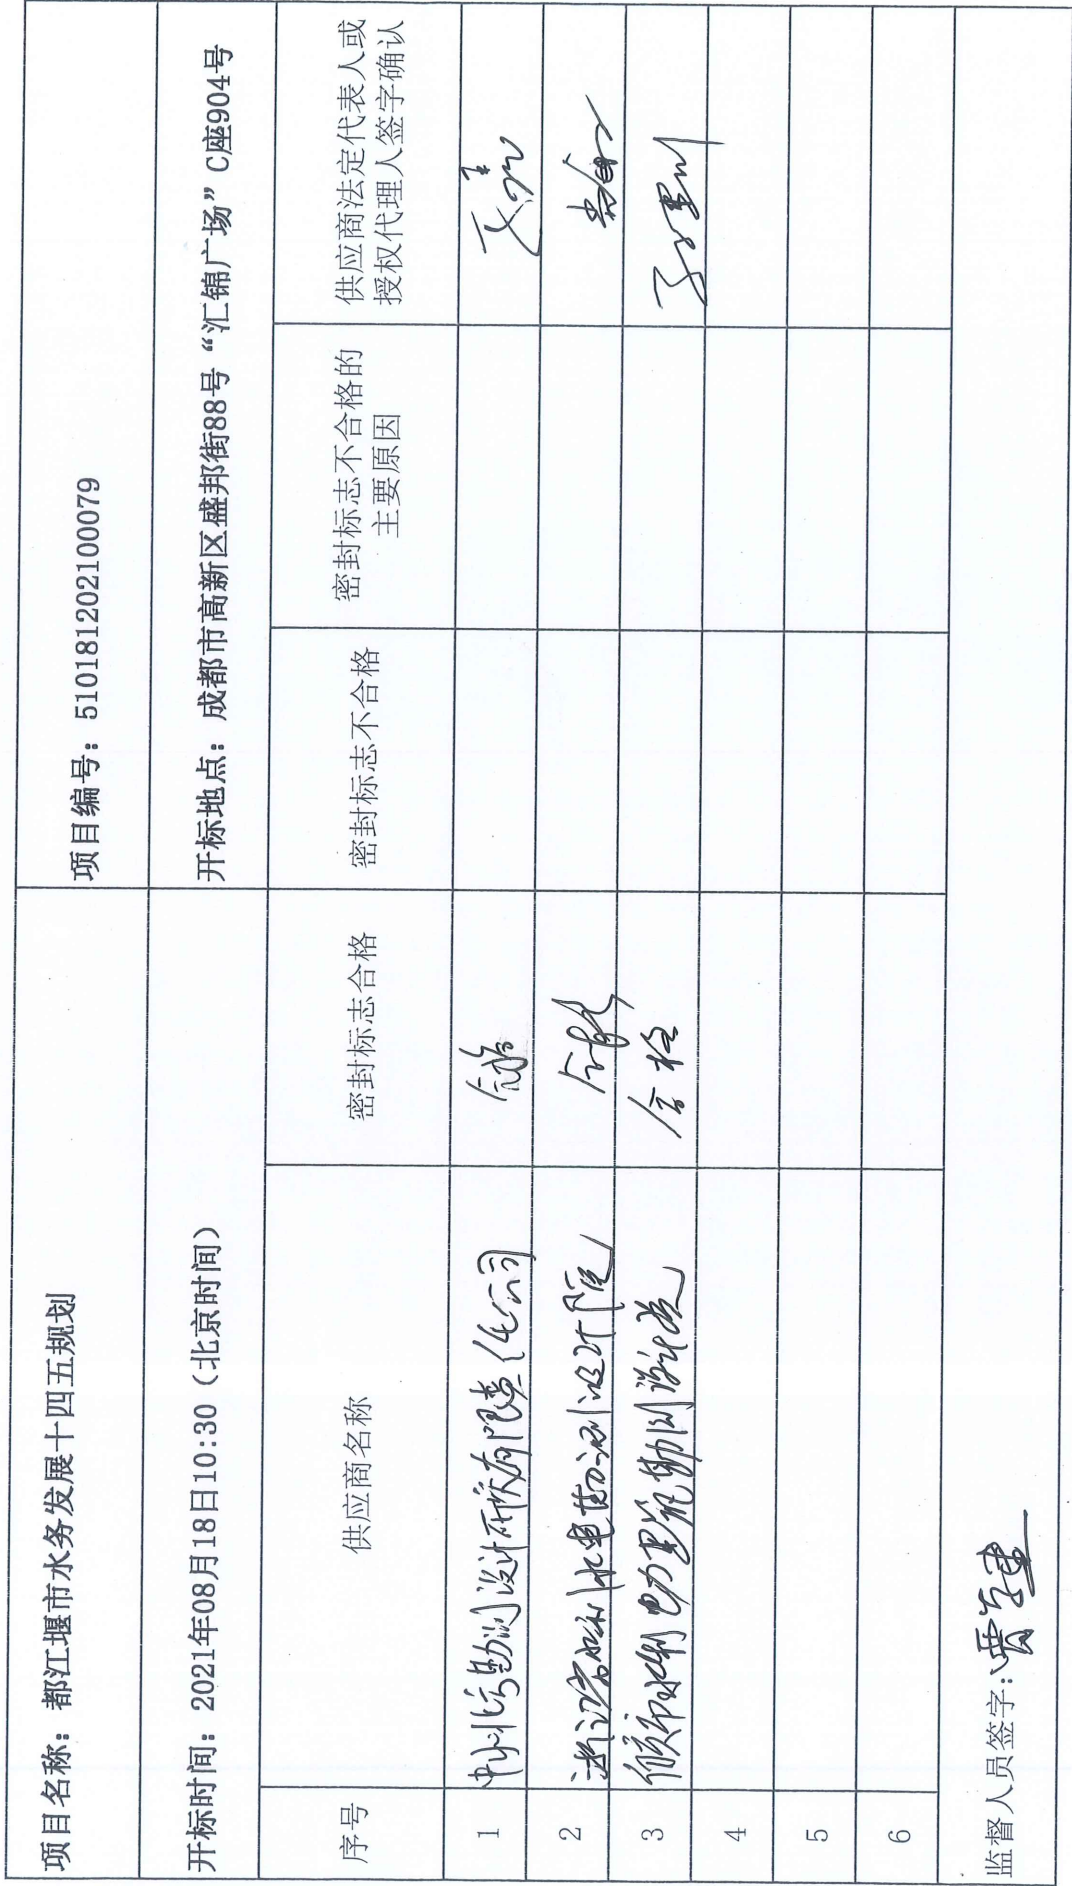 项目名称：都江堰市水务发展十四五规划 项目编号：510181202100079
开标时间：2021年08月18日10:30（北京时间） 开标地点：成都市高新区盛邦街88号“汇锦广场”C座904号
序号 供应商名称 密封标志合格 密封标志不合格 密封标志不合格的 供应商法定代表人或
主要原因 授权代理人签字确认
1 中水北方勘测设计研究有限责任公司 合格
2 浙江省水利水电勘测设计院 合格
3 水利电力建筑勘测设计院 合格
4
5
6
监督人员签字：